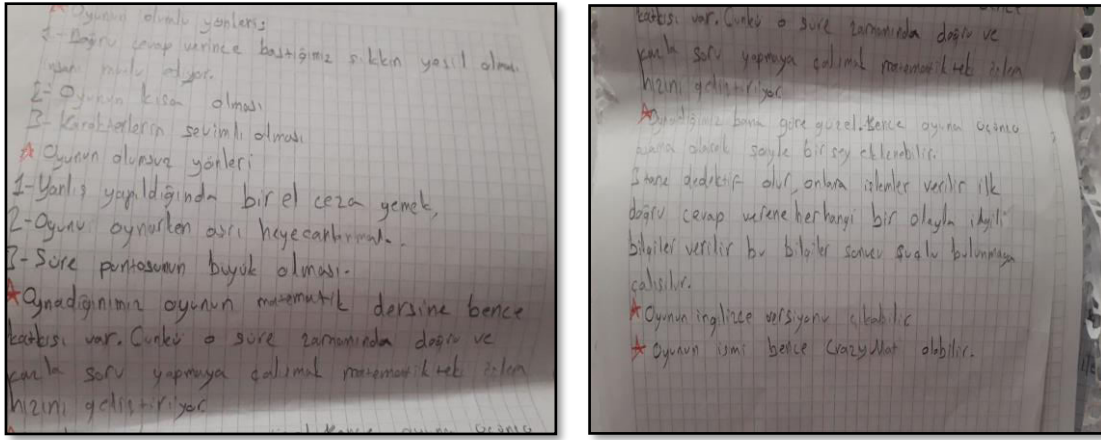 Oyunun olumlu yönleri;
1-Doğru cevap verince bastığımız şıkkın yeşil olması
mutlu ediyor.
2- Oyunun kısa olması
3- Karakterlerin sevimli olması
Oyunun olumsuz yönleri
1-Yanlış yapıldığında bir el ceza yemek,
2-Oyunu oynarken aşrı
3-Süre puntosunun büyük olması.
oyunun matematik dersine bence
katkısı var. Çünkü o süre zamanında doğru ve
soru yapmaya çalışmak matematikteki
hızını geliştiriyor
katkısı var. Çünkü o süre zamanında doğru ve
soru yapmaya çalışmak matematikteki
hızını geliştiriyor
bana göre güzel. Bence oyuna üçüncü
olarak şöyle bir şey eklenebilir.
dedektif olur, onlara işlemler verilir ilk
doğru cevap verene herhangi bir olayla ilgili
bilgiler verilir bu bilgiler sonucu suçlu bulunmaya
çalışılır.
Oyunun ingilizce versiyonu çıkabilir
Oyunun ismi bence olabilir.